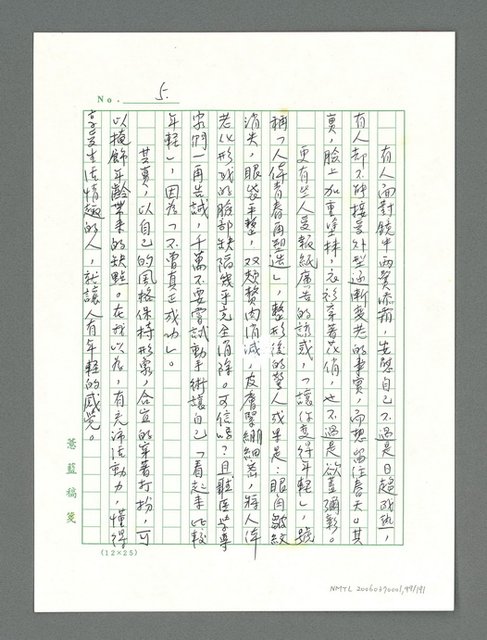 No. 5.
有人面對鏡中兩鬢添霜，安慰自己不過是日趨成熟，
有人卻不能接受外型逐漸變老的事實，而想留住春天。其
實，臉上加重塗抹，衣衫穿著花俏，也不過是欲蓋彌彰。
更有些人受報紙廣告的誘惑，「讓你變得年輕」，號
稱「人倖青春再塑造」，整形後的驚人成果是：眼角皺紋
消失，眼袋平整，雙頰贅肉消減，皮膚緊繃細嫩，將人倖
老化形成的臉部缺陷幾乎完全消除。可信嗎？且聽醫學專
家們一再告誡，千萬不要嘗試動手術讓自己「看起來比較
年輕」，因為「不曾真正成功」。
其實，以自己的風格保持形象，合宜的穿著打扮，可
以掩飾年齡帶來的缺點。在我以為，有充沛活動力，懂得
享受生活情趣的人，就讓人有年輕的感覺。
薈藍稿箋
(12×25)
NMTL 20060370001,99/191